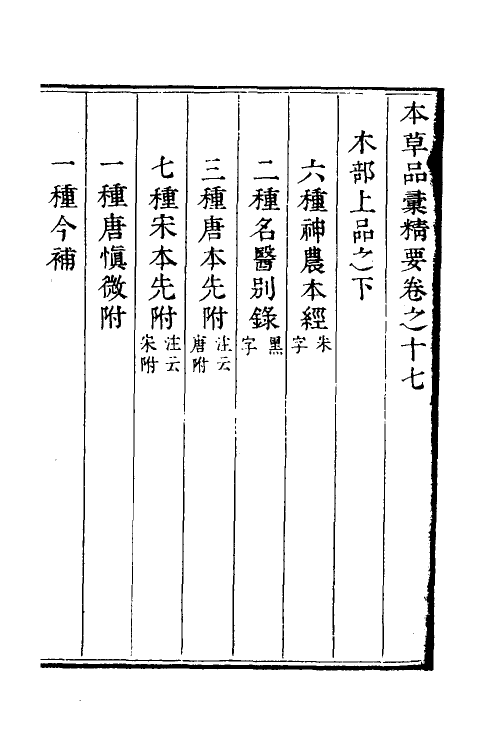 本草品彙精要卷之十七
木部上品之下
六種神農本經朱字
二種名醫別錄黑字
三種唐本先附注云唐附
七種宋本先附注云宋附
一種唐慎微附
一種今補